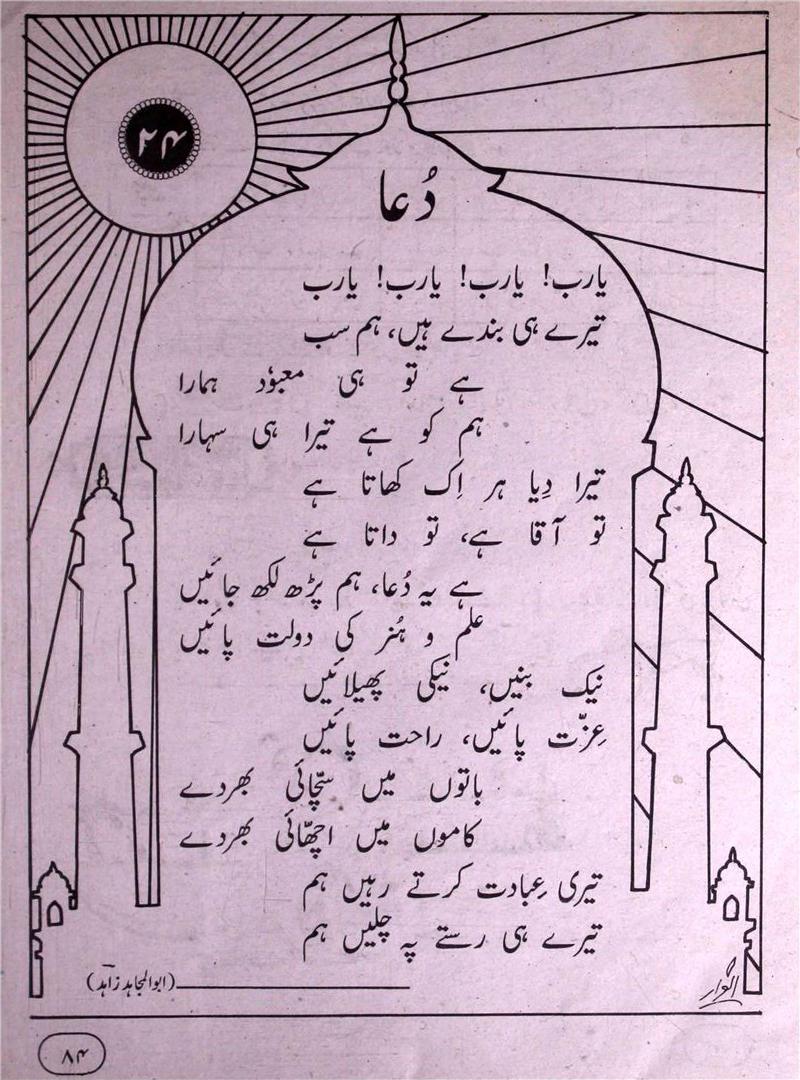 ۲۴
دُعا
یارب! یارب! یارب! یارب
تیرے ہی بندے ہیں، ہم سب
ہے تو ہی معبوُد ہمارا
ہم کو ہے تیرا ہی سہارا
تیرا دِیا ہر اِک کھاتا ہے
تو آقا ہے، تو داتا ہے
ہے یہ دُعا، ہم پڑھ لکھ جائیں
علم و ہُنر کی دولت پائیں
نیک بنیں، نیکی پھیلائیں
عِزّت پائیں، راحت پائیں
باتوں میں سچّائی بھردے
کاموں میں اچھّائی بھردے
تیری عِبادت کرتے رہیں ہم
تیرے ہی رستے پہ چلیں ہم
(ابوالمجاہد زاہد)
انوار
۸۴